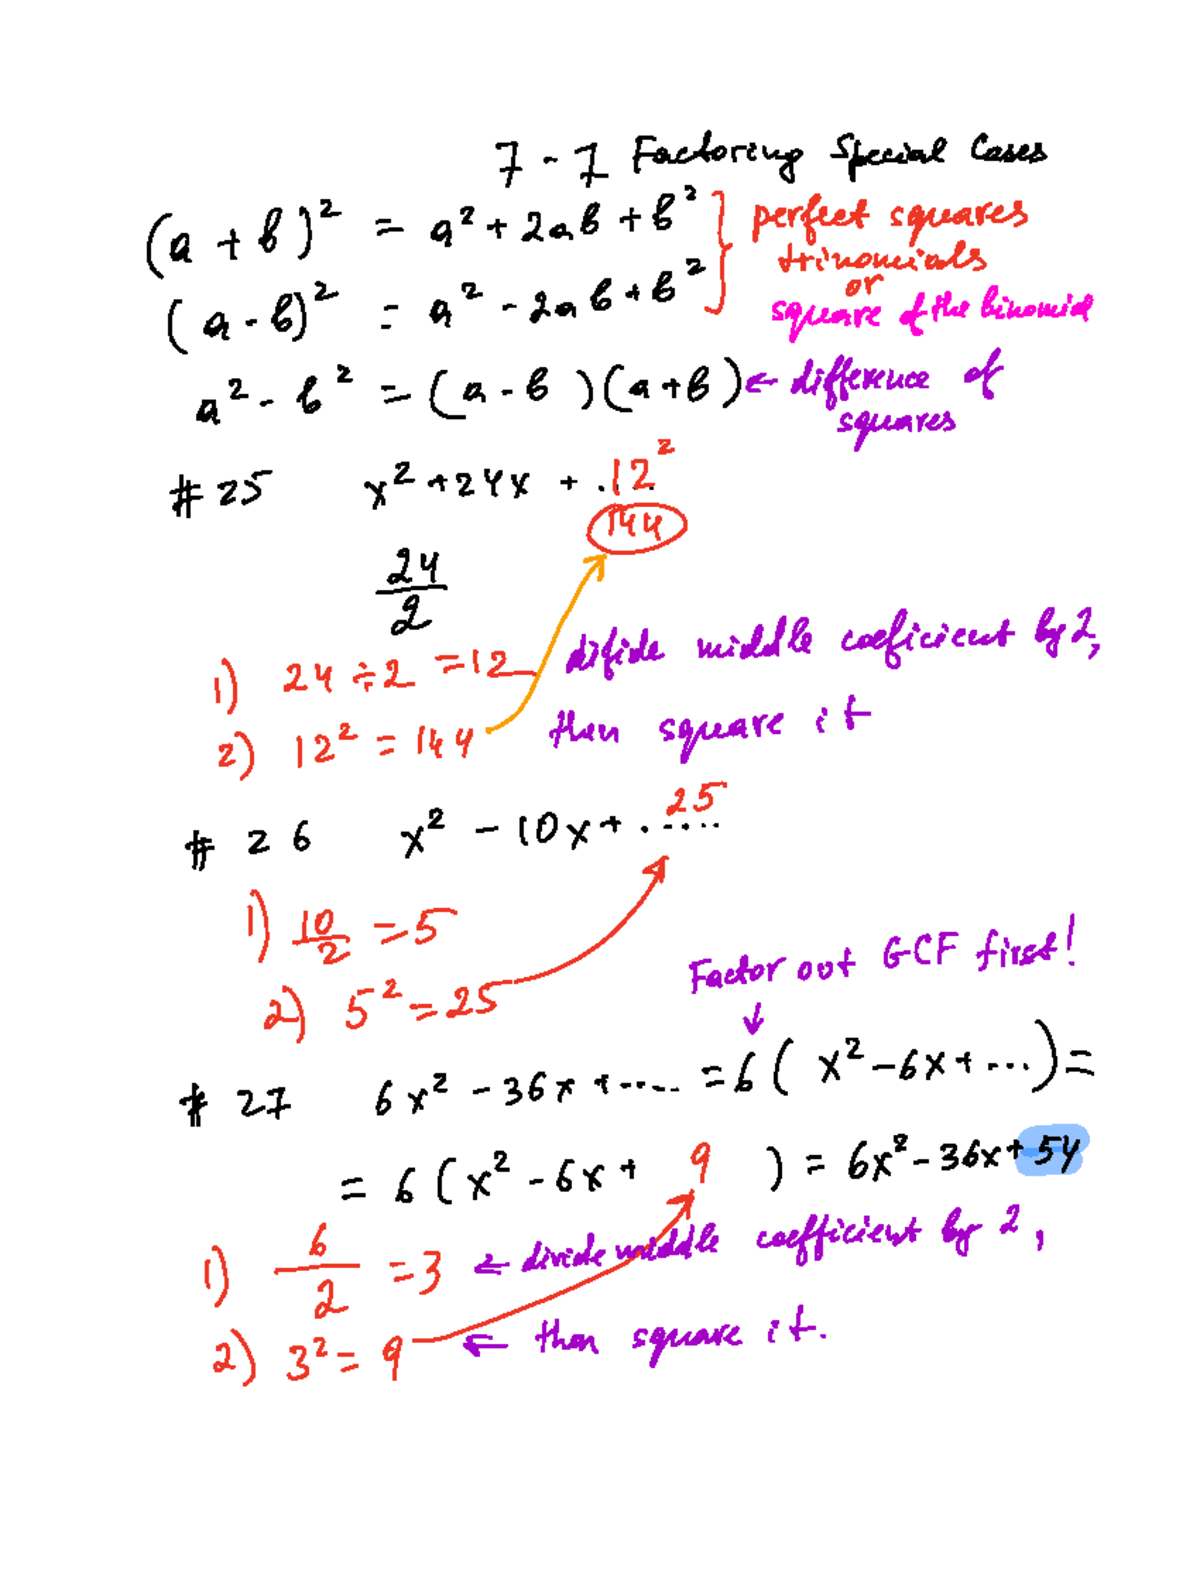 7-7 Factoring Special Cases
(a + b)² = a² + 2ab + b² } perfect squares
trinomials
or
(a - b)² = a² - 2ab + b² square of the binomial
a² - b² = (a - b)(a + b) ← difference of
squares
# 25 x² + 24x + .12²..
144
24
2
difide middle coeficient by 2,
1) 24 ÷ 2 = 12
then square it
2) 12² = 144
25
# 26 x² - 10x + .....
1) 10/2 = 5
Factor out GCF first!
2) 5² = 25
↓
# 27 6x² - 36x + .... = 6( x² - 6x + ...) =
= 6(x² - 6x + 9 ) = 6x² - 36x + 54
1) 6/2 = 3 ← divide middle coefficient by 2,
2) 3² = 9 ← then square it.